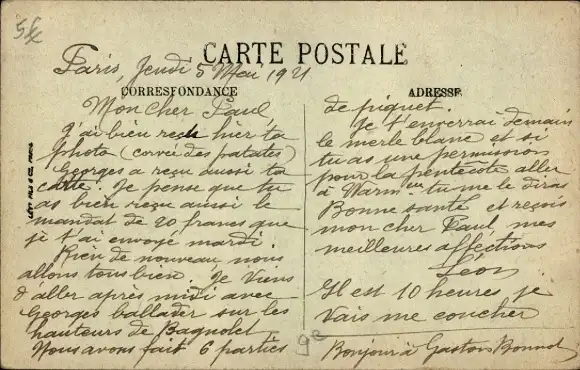 CARTE POSTALE
Paris, Jeudi 5 Mai 1921
CORRESPONDANCE
Mon cher Paul,
J'ai bien reçu hier ta
photo (corvée des patates)
Georges a reçu aussi ta
carte. Je pense que tu
as bien reçu aussi le
mandat de 20 francs que
je t'ai envoyé mardi.
Rien de nouveau nous
allons tous bien. Je viens
d'aller après midi avec
Georges ballader sur les
hauteurs de Bagnolet
Nous avons fait 6 parties
ADRESSE
de piquet.
Je t'enverrai demain
le merle blanc et si
tu as une permission
pour la pentecôte aller
à tu me le diras
Bonne santé et reçois
mon cher Paul, mes
meilleures affections
Léon
Il est 10 heures je
vais me coucher
Bonjour à Gaston Bonnot